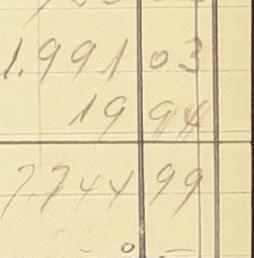 1.991 03
19 94
7.744 99